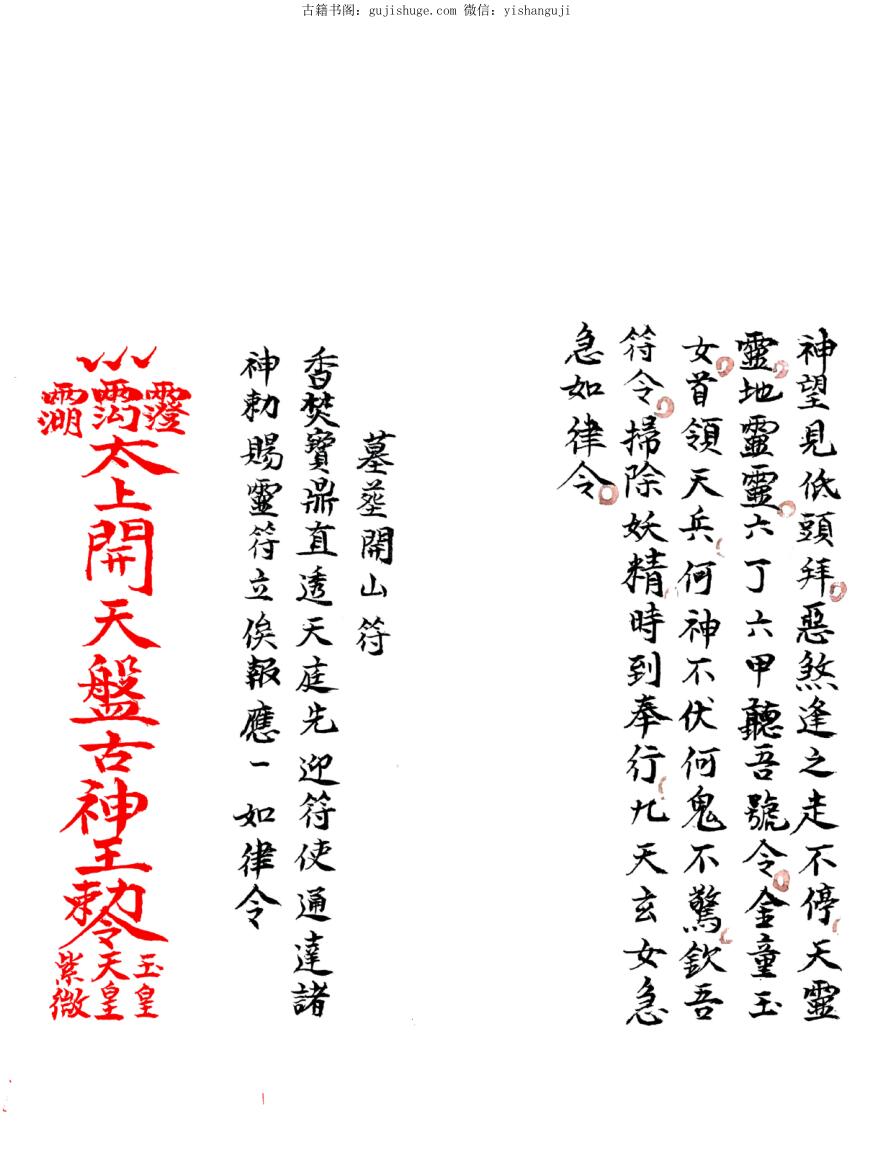 古籍书阁：gujishuge.com 微信：yishanguji
神望見低頭拜惡煞逢之走不停天靈
靈地靈靈六丁六甲聽吾號令金童玉
女首領天兵何神不伏何鬼不驚欽吾
符令掃除妖精時到奉行九天玄女急
急如律令
墓葬開山符
香焚寶鼎直透天庭先迎符使通達諸
神勅賜靈符立俟報應一如律令
太上開天盤古神王勅令
玉皇
天皇
紫微